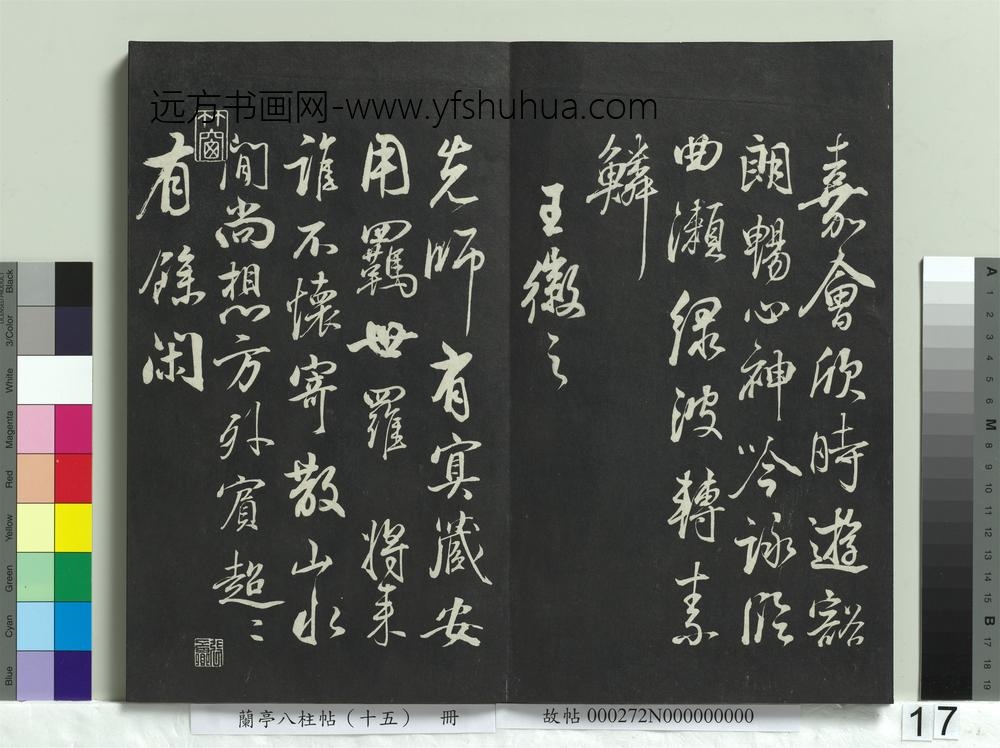 远方书画网-www.yfshuhua.com
嘉會欣時遊豁
朗暢心神吟詠臨
曲瀨綠波轉素
鱗
王徽之
先師有冥藏安
用羈世羅將来
誰不懷寄散山水
閒尚想方外賓超〻
有餘閑
竹窗
蘭亭八柱帖(十五) 冊
故帖000272N000000000
17
Black
3/Color
White
Magenta
Red
Yellow
Green
Cyan
Blue
A
1
2
3
4
5
6
M
8
9
10
11
12
13
14
15
B
17
18
19